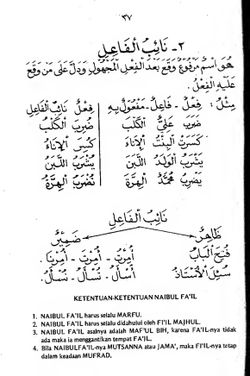 ٣٧
٢ - نَائِبُ الْفَاعِلِ
هُوَ اسْمٌ مَرْفُوعٌ وَقَعَ بَعْدَ الْفِعْلِ الْمَجْهُولِ وَدَلَّ عَلَى مَنْ وَقَعَ
عَلَيْهِ الْفِعْلُ.
مِثْلُ : فِعْلٌ - فَاعِلٌ - مَفْعُولٌ بِهِ فِعْلٌ نَائِبُ الْفَاعِلِ
ضَرَبَ عَلِيٌّ الْكَلْبَ ضُرِبَ الْكَلْبُ
كَسَرَتْ الْبِنْتُ الْإِنَاءَ كُسِرَ الْإِنَاءُ
يَشْرَبُ الْوَلَدُ اللَّبَنَ يُشْرَبُ اللَّبَنُ
يَضْرِبُ مُحَمَّدٌ الْهِرَّةَ تُضْرَبُ الْهِرَّةُ
نَائِبُ الْفَاعِلِ
ظَاهِرٌ ضَمِيرٌ
فُتِحَ الْبَابُ أُمِرْتُ - أُمِرْتَ - أُمِرْنَا.
سُئِلَ الْأُسْتَاذُ أُسْأَلُ - تُسْأَلُ - نُسْأَلُ.
KETENTUAN-KETENTUAN NAIBUL FA'IL
1. NAIBUL FA'IL harus selalu MARFU.
2. NAIBUL FA'IL harus selalu didahului oleh FI'IL MAJHUL.
3. NAIBUL FA'IL asalnya adalah MAF'UL BIH, karena FA'IL-nya tidak
ada maka ia menggantikan tempat FA'IL.
4. Bila NAIBULFA'IL-nya MUTSANNA atau JAMA', maka FI'IL-nya tetap
dalam keadaan MUFRAD.